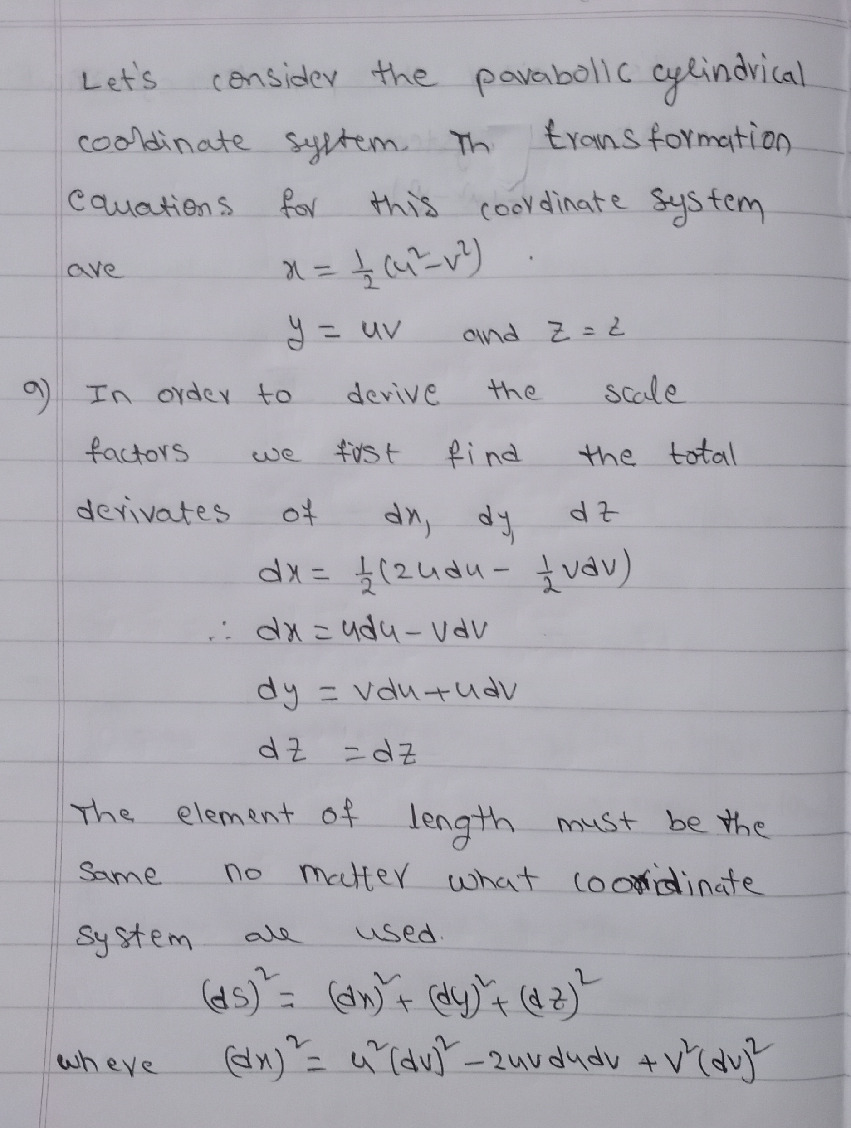 Let's consider the parabolic cylindrical
cooldinate system. Th transformation
equations for this coordinate system
are x = 1/2 (u² - v²) .
y = uv and z = z
a) In order to derive the scale
factors we first find the total
derivates of dx, dy, dz
dx = 1/2 (2udu - 1/2 vdv)
∴ dx = udu - vdv
dy = vdu + udv
dz = dz
The element of length must be the
same no matter what cooridinate
system are used.
(ds)² = (dx)² + (dy)² + (dz)²
where (dx)² = u²(dv)² - 2uvdudv + v²(dv)²